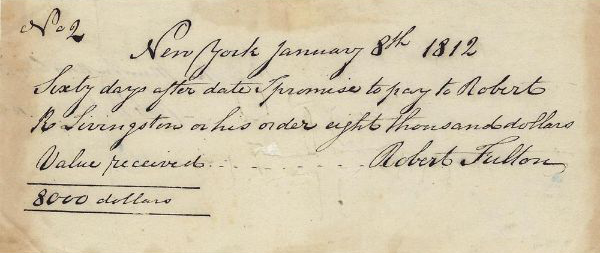 No 2
New York January 8th 1812
Sixty days after date I promise to pay to Robert
R Livingston or his order eight thousand dollars
Value received Robert Fulton
8000 dollars